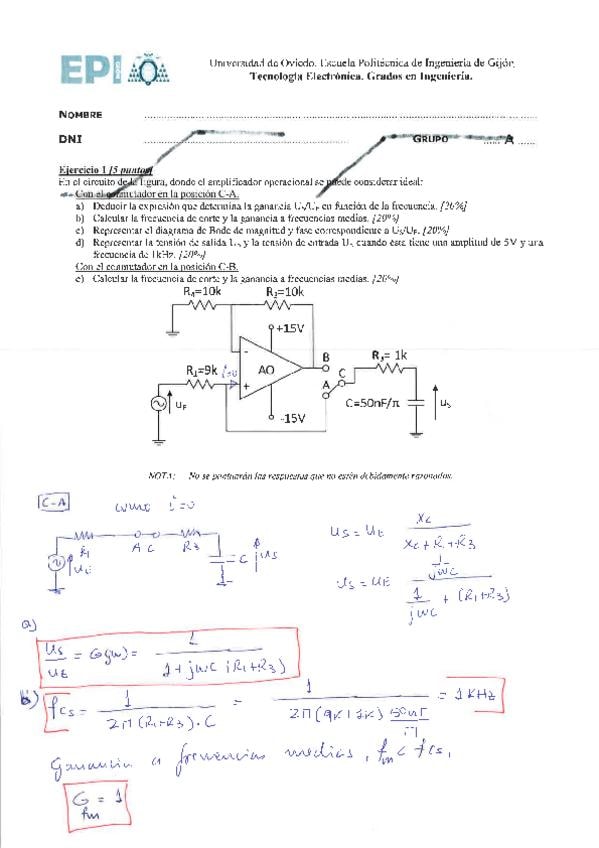 EPI GIJON
Universidad de Oviedo. Escuela Politécnica de Ingeniería de Gijón.
Tecnología Electrónica. Grados en Ingeniería.
NOMBRE
DNI GRUPO A
Ejercicio 1 [5 puntos]
En el circuito de la figura, donde el amplificador operacional se puede considerar ideal:
Con el conmutador en la posición C-A.
a) Deducir la expresión que determina la ganancia US/UE en función de la frecuencia. [20%]
b) Calcular la frecuencia de corte y la ganancia a frecuencias medias. [20%]
c) Representar el diagrama de Bode de magnitud y fase correspondiente a US/UE. [20%]
d) Representar la tensión de salida US, y la tensión de entrada UE cuando ésta tiene una amplitud de 5V y una
frecuencia de 1kHz. [20%]
Con el conmutador en la posición C-B.
e) Calcular la frecuencia de corte y la ganancia a frecuencias medias. [20%]
R4=10k R2=10k
+15V
- B
R1=9k i=0 AO C R3= 1k
+ A
uE -15V C=50nF/π uS
NOTA: No se puntuarán las respuestas que no estén debidamente razonadas.
C-A como i=0
R1 A C R3 C uS
uE
uS = uE XC / XC+R1+R3
uS = uE 1/jωC / 1/jωC + (R1+R3)
a)
uS/uE = G(jω) = 1 / 1+jωC(R1+R3)
b) fcs = 1 / 2π(R1+R3)·C = 1 / 2π(9k+1k) 50nF/π = 1KHz
Ganancia a frecuencias medias, fm < fcs,
G fm = 1